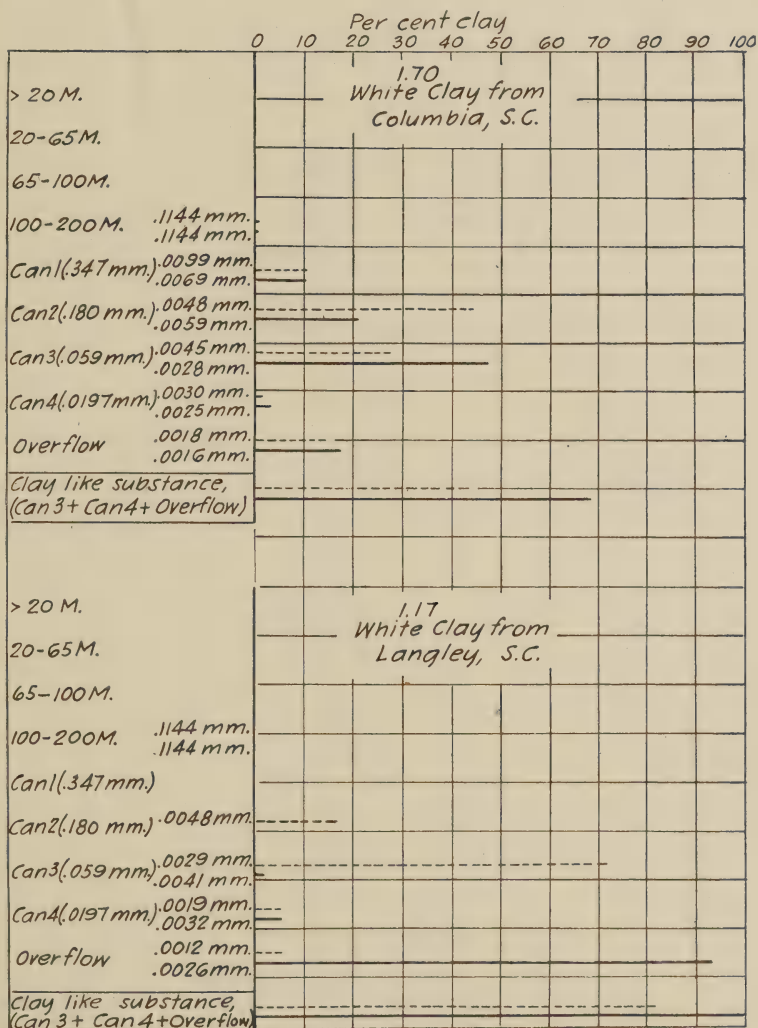 Per cent clay
0 10 20 30 40 50 60 70 80 90 100
1.70
White Clay from
Columbia, S.C.
> 20 M.
20-65M.
65-100M.
100-200M. .1144 mm.
.1144 mm.
Can1(.347mm.) .0099 mm.
.0069 mm.
Can2(.180 mm.) .0048 mm.
.0059 mm.
Can3(.059mm.) .0045 mm.
.0028 mm.
Can4(.0197mm.) .0030 mm.
.0025 mm.
Overflow .0018 mm.
.0016 mm.
Clay like substance,
(Can 3 + Can 4 + Overflow)
1.17
White Clay from
Langley, S.C.
> 20 M.
20-65M.
65-100M.
100-200M. .1144 mm.
.1144 mm.
Can1(.347mm.)
Can2(.180 mm.) .0048mm.
Can3(.059mm.) .0029 mm.
.0041 mm.
Can4(.0197mm.) .0019 mm.
.0032 mm.
Overflow .0012 mm.
.0026mm.
Clay like substance,
(Can 3 + Can 4 + Overflow)